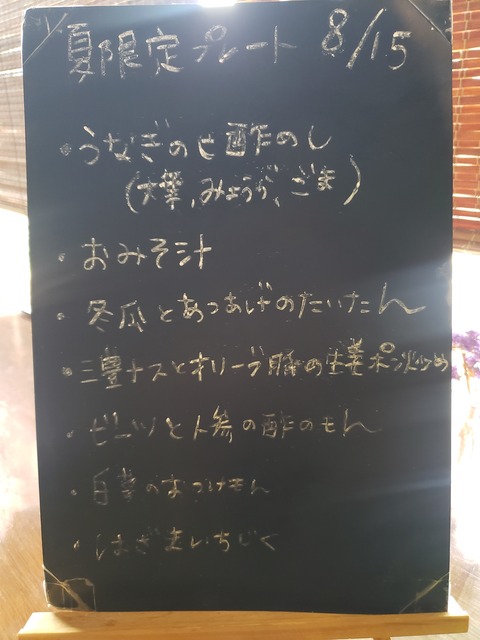 夏限定プレート 8/15
・うなぎのせ酢めし
(大葉,みょうが,ごま)
・おみそ汁
・冬瓜とあつあげのたいたん
・三豊ナスとオリーブ豚の生姜ポン炒め
・ビーツと人参の酢のもん
・のおつけもん
・いちじく